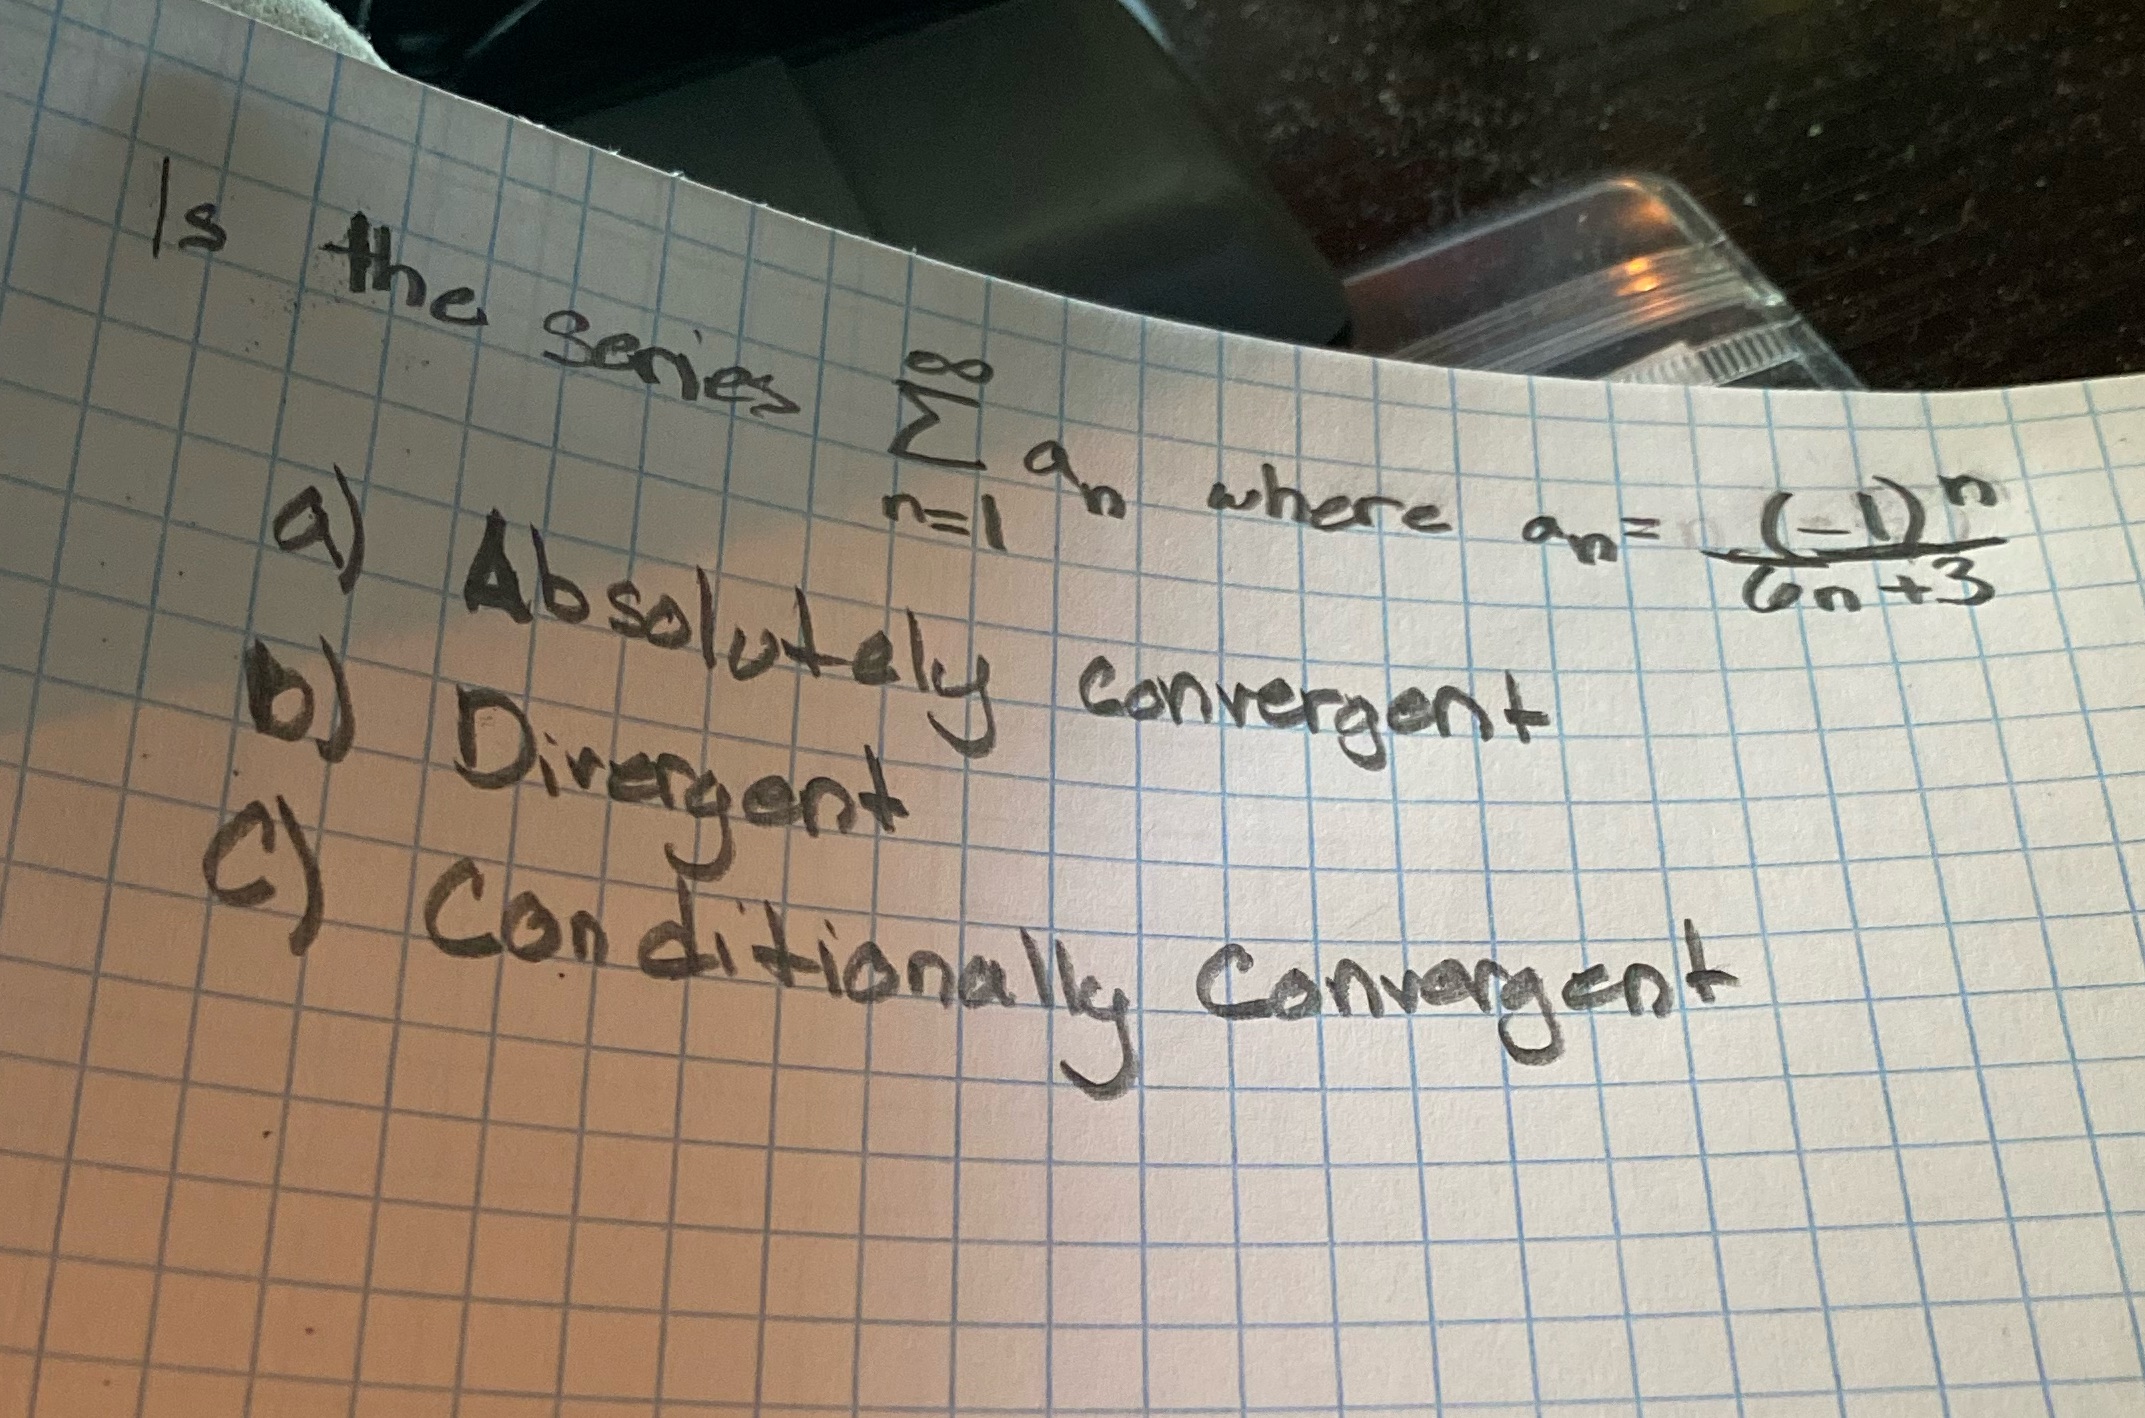 Is the series ∞∑n=1 aₙ where aₙ= (-1)ⁿ/6n+3
a) Absolutely convergent
b) Divergent
C) Conditionally Convergent